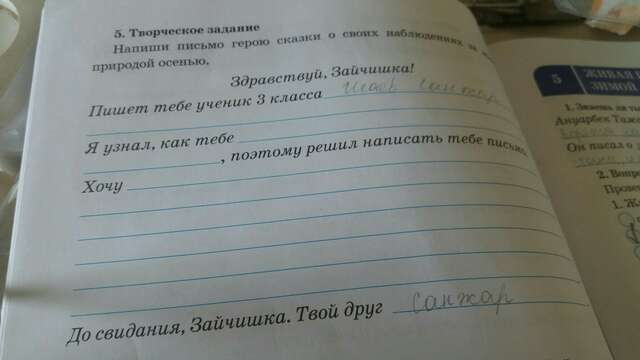 5. Творческое задание
Напиши письмо герою сказки о своих наблюдениях за
природой осенью.
Здравствуй, Зайчишка!
Пишет тебе ученик 3 класса Исаев Санжар
Я узнал, как тебе
, поэтому решил написать тебе письмо.
Хочу
До свидания, Зайчишка. Твой друг Санжар
5 ЖИВАЯ
ЗИМОЙ
1. Знаешь ли
Ануарбек Таже
Он писал о
2. Вопр
Прове
1. Ж